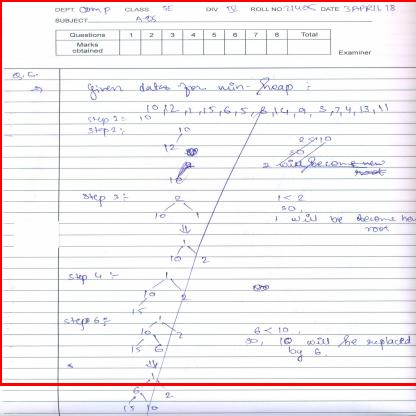 DEPT Comp CLASS SE DIV IV ROLL NO 21405 DATE 3 APRIL 18
SUBJECT A-DS
Questions 1 2 3 4 5 6 7 8 Total
Marks obtained
Examiner
Q.C.
→ Given dates for min-heap :-
10,12,1,15,6,5,8,14,9,3,7,4,13,11
step 1: 10
step 2: 10
12 2 < 10
so
2 will become new root
10
step 3:- 2 1 < 2
10 1 so,
1 will be become new root
⇓
1
10 2
step 4 :- 1
10 2
15
step 6:- 1 6 < 10
10 2 so, 10 will be replaced
15 6 by 6.
⇓
1
6 2
15 10